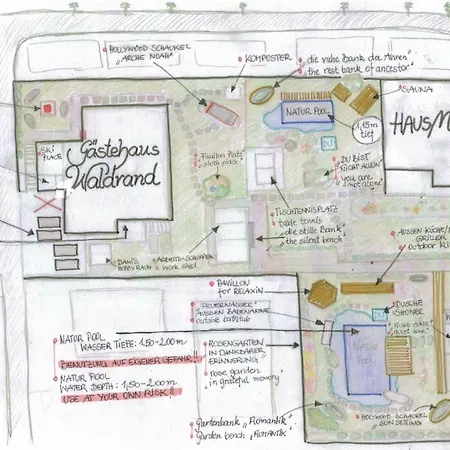 HOLLYWOOD SCHAUKEL
"ARCHE NOAH"
KOMPOSTER
die ruhe Bank der Ahnen
the rest bank of ancestor
SAUNA
NATUR POOL
1,15m
tief
HAUS
SKI
PLACE
Gästehaus
Waldrand
DU
DU BIST
NICHT ALLEIN
you are
not alone
TISCHTENNISPLATZ
table tennis
die stille Bank
the silent bench
AUSSEN KÜCHE/
GRILLER
outdoor
DANI'S
HOBBYRAUM
work shed
PAVILLON
for RELAXIN
"FEUERWASSER"
AUSSEN BADEWANNE
outside bathtub
DUSCHE
SHOWER
NATUR POOL
WASSER TIEFE: 1,50-2,00 m
BENUTZUNG AUF EIGENER GEFAHR!!
NATUR POOL
WATER DEPTH: 1,50-2,00 m
USE AT YOUR OWN RISK!!
ROSENGARTEN
IN DANKBARER
ERINNERUNG
rose garden
in grateful memory
NATUR
POOL
Gartenbank "Romantik"
Garden bench "ROMANTIK"
HOLYWOOD-SCHAUKEL
"SUN SETTING"